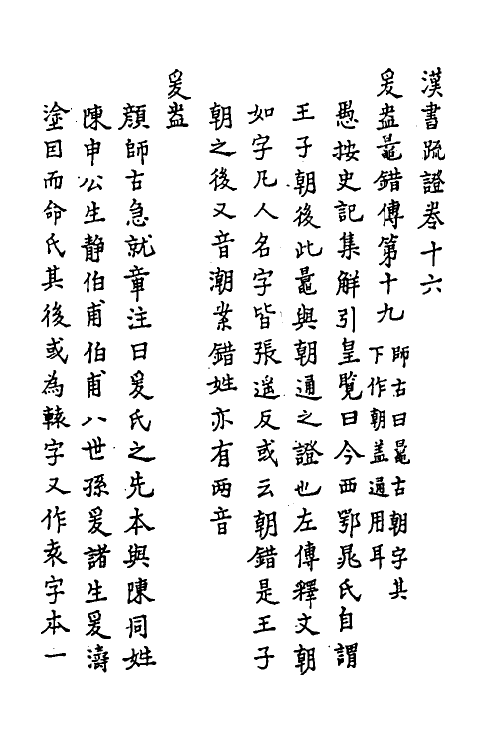 漢書疏證卷十六
爰盎鼂錯傳第十九
師古曰鼂古朝字其
下作朝蓋通用耳
愚按史記集解引皇覽曰今西鄂晁氏自謂
王子朝後此鼂與朝通之證也左傳釋文朝
如字凡人名字皆張遥反或云朝錯是王子
朝之後又音潮業錯姓亦有两音
爰盎
顔師古急就章注曰爰氏之先本與陳同姓
陳申公生靜伯甫伯甫八世孫爰諸生爰濤
塗因而命氏其後或為轅字又作袁字本一